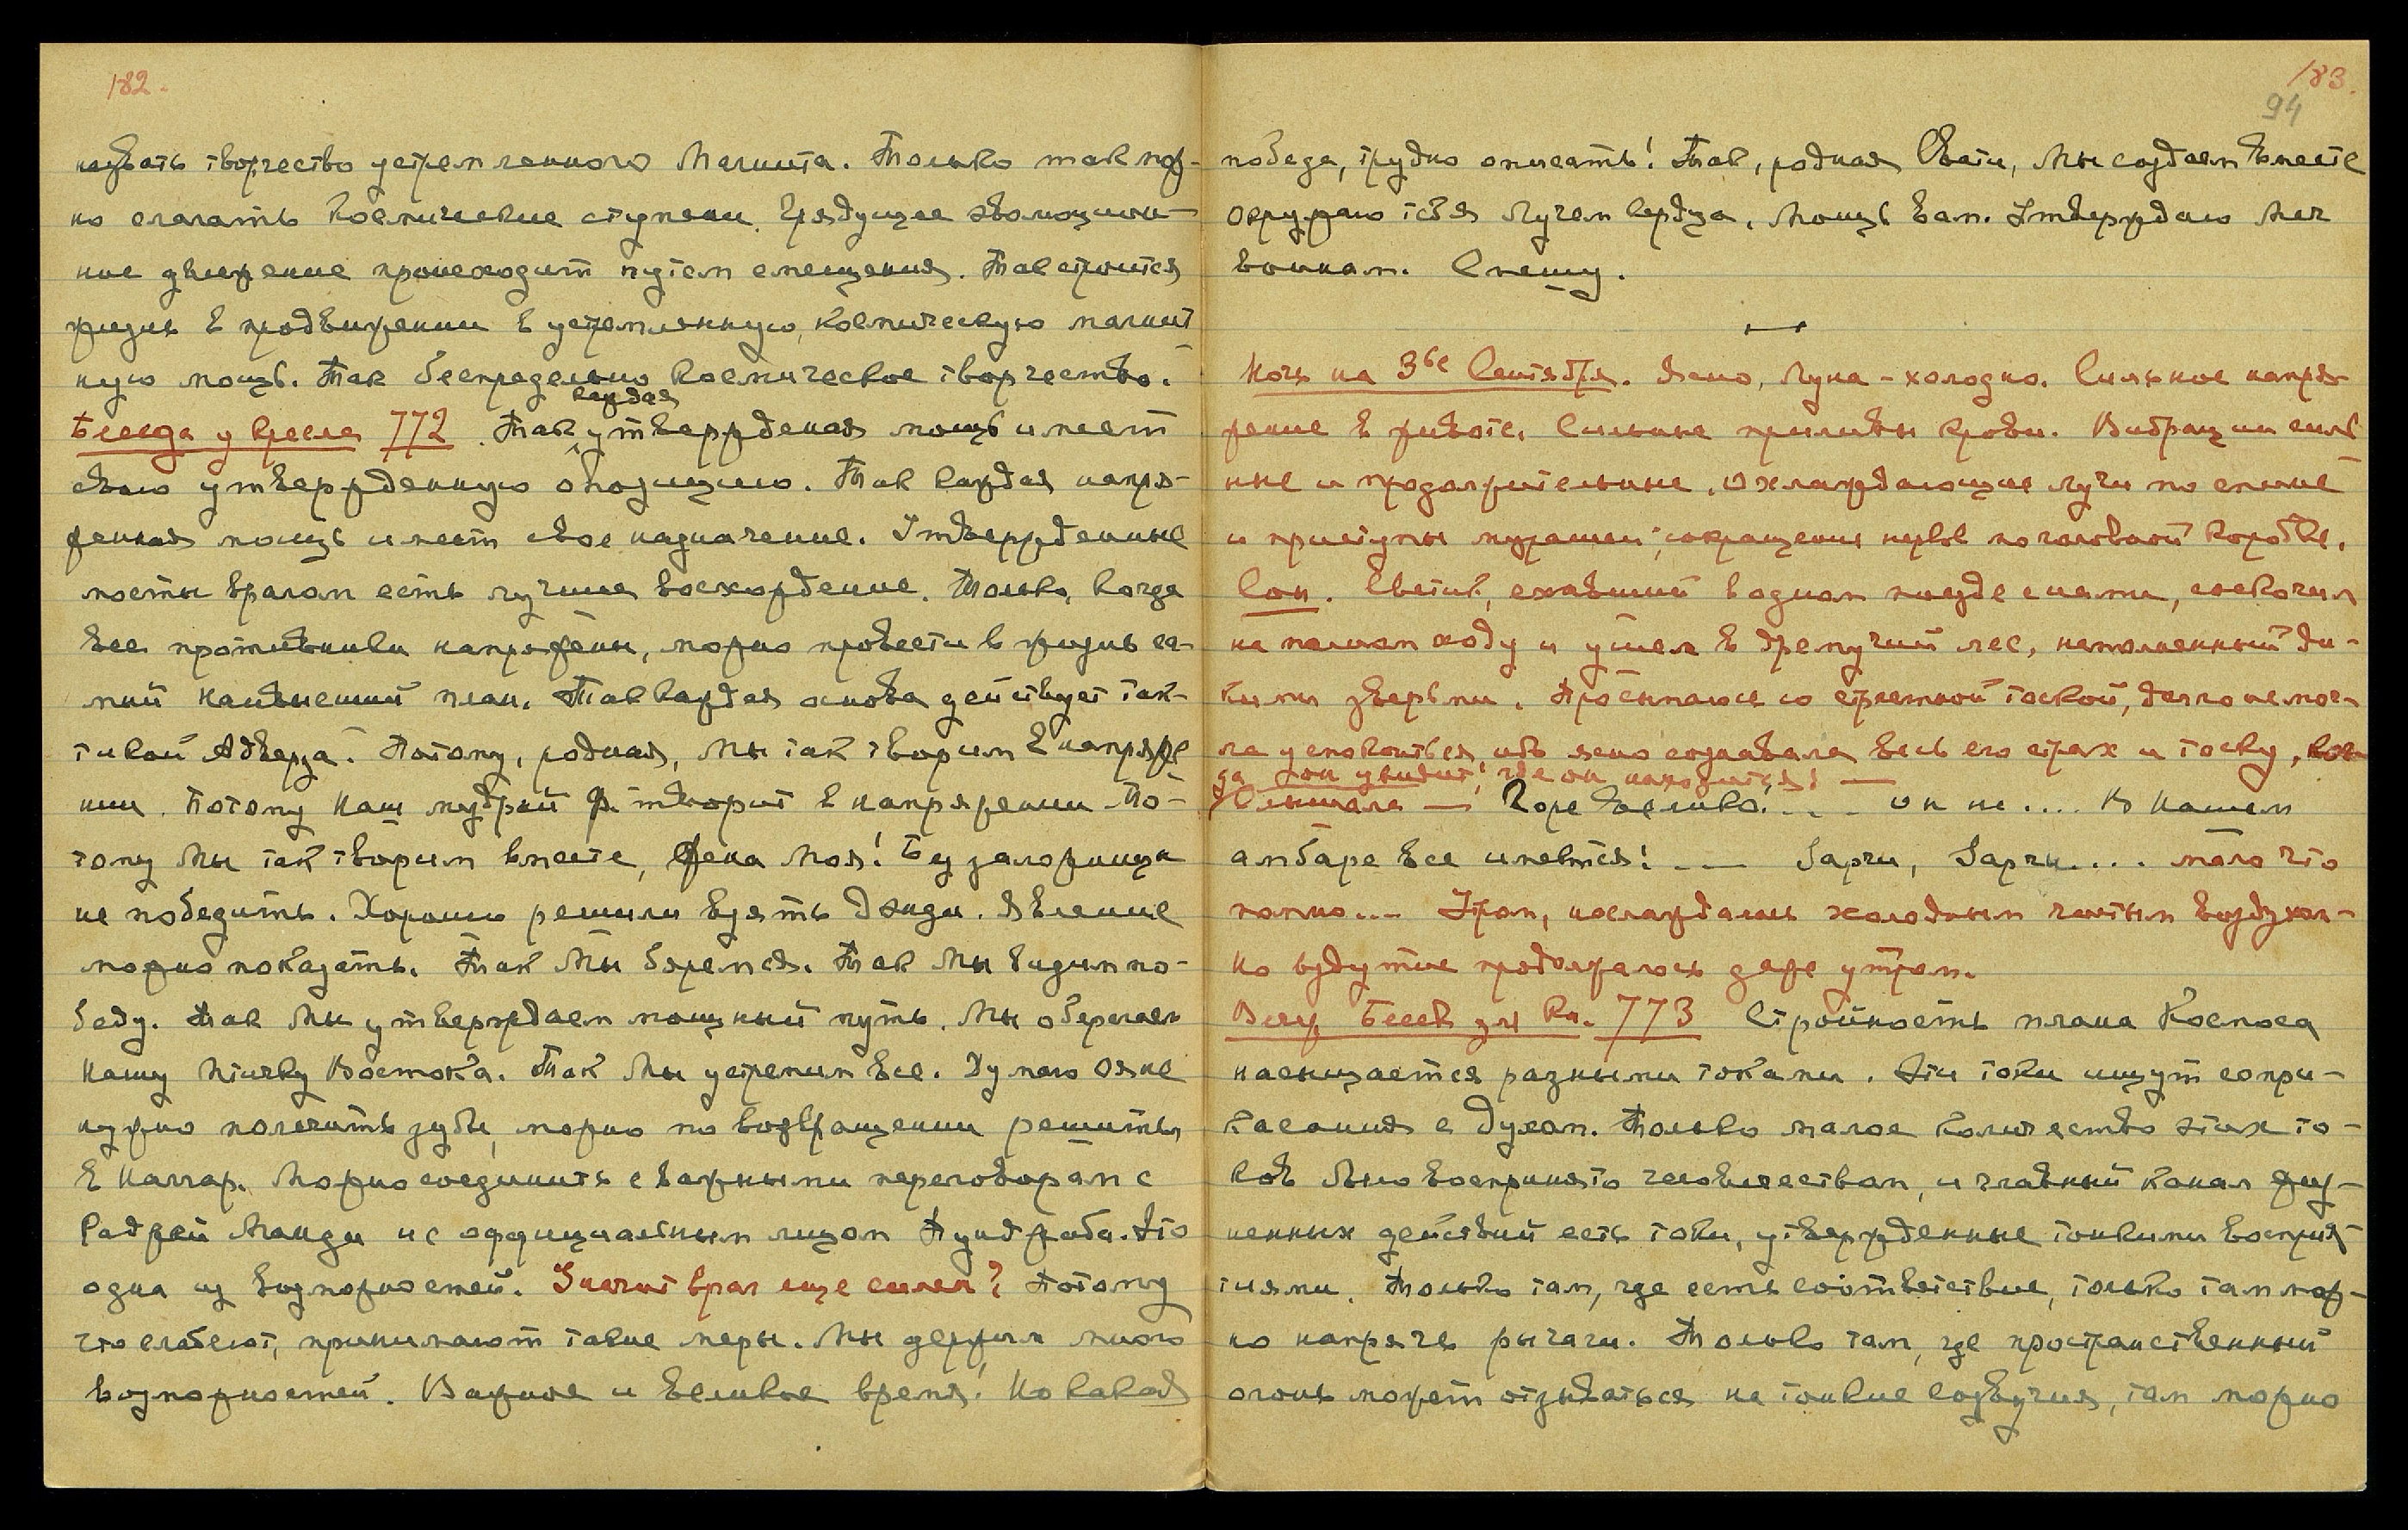 182.
назвать творчество устремленного Магнита. Только так мож-
но слагать космические ступени. Грядущее эволюцион-
ное движение происходит путем смещения. Так строится
жизнь в продвижении в устремленную, космическую магнит
ную мощь. Так беспредельно космическое творчество.
каждая
Беседа у кресла 772. Так утвержденная мощь имеет
свою утвержденную опозицию. Так каждая напря-
женная мощь имеет свое назначение. Утвержденные
мосты врагом есть лучшее восхождение. Только, когда
все противники напряжены, можно провести в жизнь са-
мый наивысший план. Так каждая основа действует так-
тикой Адверза. Потому, родная, Мы так творим в напряже
нии. Потому Наш мудрый Ф. творит в напряжении. По-
тому Мы так творим вместе, Жена Моя! Без заложницы
не победить. Хорошо решили взять Дзиди. Явление
можно показать. Так Мы боремся. Так Мы видим по-
беду. Так Мы утверждаем мощный путь. Мы оберегаем
Нашу птичку Востока. Так Мы устремим все. Думаю Ояне
нужно полечить зубы, можно по возвращении решить
в Наггар. Можно соединить с важными переговорам с
Раджей Манди и с оффициальным лицом Пунджаба. Это
одна из возможностей. Значит враг еще силен? Потому
что слабеют, принимают такие меры. Мы держим много
возможностей. Важное и великое время! Но какая
183.
94
победа, трудно описать! Так, родная Свати, Мы создаем вместе
окружаю тебя Лучем Сердца. Мощь вам. Утверждаю Меч
воинам. Спешу.
Ночь на 3ье Сентября. Ясно, Луна - холодно. Сильное напря-
жение в животе. Сильные приливы крови. Вибрации силь
ные и продолжительные. охлаждающие лучи по спине
и приступы мурашек; сокращения нервов по головной коробке.
Сон. Светик, ехавший в одном поезде с нами, соскочил
на полном ходу и ушел в дремучий лес, наполненный ди-
кими зверьми. Просыпаюсь со страшной тоской, долго не мог-
ла успокоиться, ибо ясно сознавала весь его страх и тоску, ког
да он увидит, где он находится! —
Слышала — Горе велико! . . — он не.... В Нашем
амбаре все имеется! . — Зарги, Зарги.... мало что
помню... Утром, наслаждалась холодным чистым воздухом -
но вздутие продолжалось даже утром.
Веч. Бесед для Кн. 773 Стройность плана Космоса
насыщается разными токами. Эти токи ищут сопри-
касания с духом. Только малое количество этих то-
ков было воспринято человечеством, и главный канал жиз-
ненных действий есть токи, утвержденные тонкими восприя-
тиями. Только там, где есть соответствие, только там мож-
но напрячь рычаги. Только там, где пространственный
огонь может отзываться на тонкие созвучия, там можно